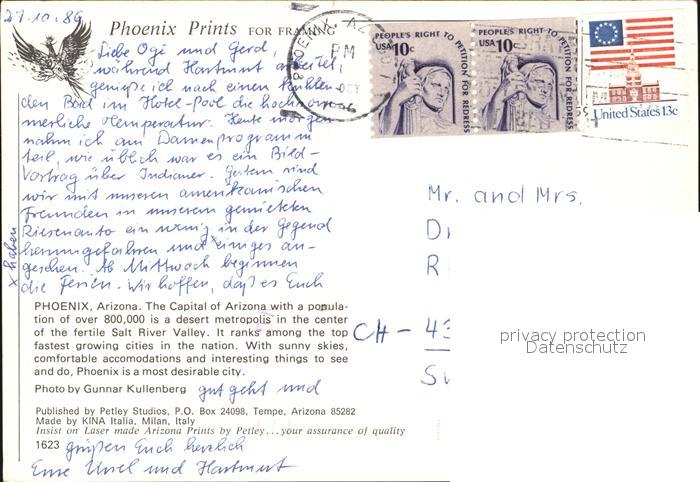 27.10.86
Phoenix Prints FOR FRAMING
Liebe Ogi und Gerd,
während Hartmut arbeitet,
genieße ich nach einem kühlen-
den Bad im Hotel-Pool die hochsom-
merliche Temperatur. Heute morgen
nahm ich am Damenprogramm
teil, wie üblich war es ein Bild-
Vortrag über Indianer. Gestern sind
wir mit unseren amerikanischen
Freunden in unserem gemieteten
Riesenauto ein wenig in der Gegend
herumgefahren und x einiges an-
gesehen. Ab Mittwoch beginnen
die Ferien. Wir hoffen, daß es Euch
x haben
PHOENIX, Arizona. The Capital of Arizona with a popula-
tion of over 800,000 is a desert metropolis in the center
of the fertile Salt River Valley. It ranks among the top
fastest growing cities in the nation. With sunny skies,
comfortable accomodations and interesting things to see
and do, Phoenix is a most desirable city.
Photo by Gunnar Kullenberg
gut geht und
Published by Petley Studios, P.O. Box 24098, Tempe, Arizona 85282
Made by KINA Italia, Milan, Italy
Insist on Laser made Arizona Prints by Petley...your assurance of quality
1623
grüßen Euch herzlich
Eure Ursel und Hartmut
PHOENIX, AZ
PM
OCT
PEOPLE'S RIGHT TO PETITION FOR REDRESS
USA 10c
PEOPLE'S RIGHT TO PETITION FOR REDRESS
USA 10c
United States 13c
Mr. and Mrs.
D
R
CH - 43
S
privacy protection
Datenschutz